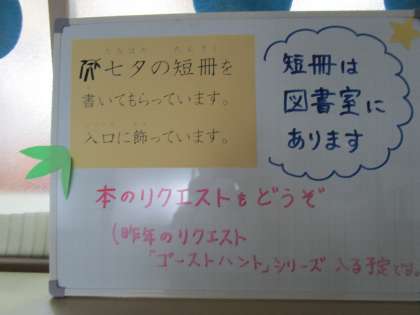 七夕の短冊を
書いてもらっています。
入口に飾っています。
短冊は
図書室に
あります
本のリクエストもどうぞ
(昨年のリクエスト
「ゴーストハント」シリーズ 入る予定です。